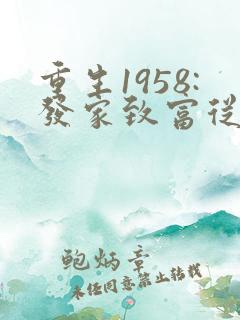 重生1958:
發家致富從
鮑炳章
未经同意禁止转载